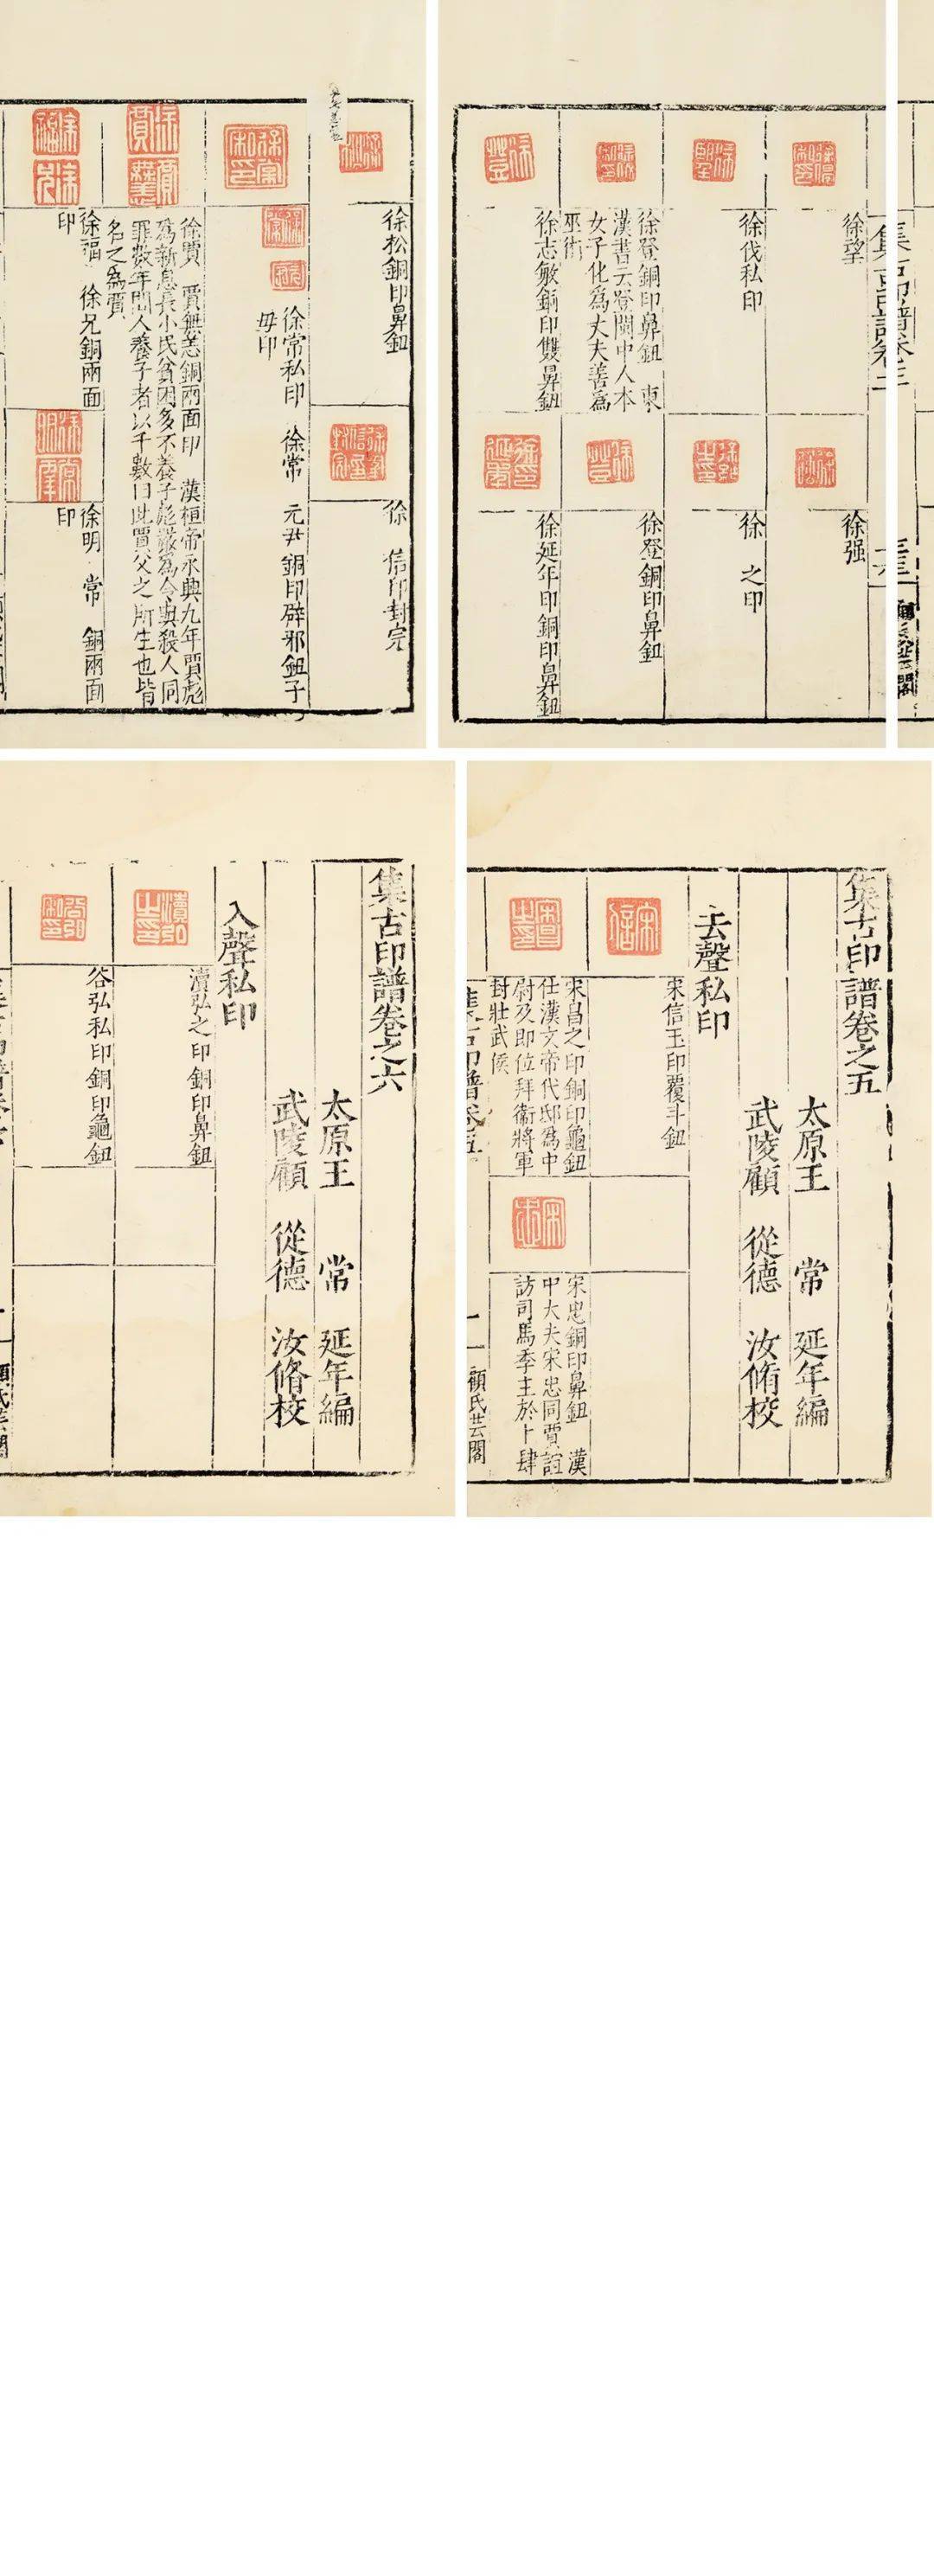 徐松銅印鼻鈕
徐 信印封完
徐常私印 徐常 元尹 銅印辟邪鈕子
毋印
徐賈 賈無恙銅兩面印 漢桓帝永興九年賈彪
為新息長小民貧困多不養子彪嚴為令與殺人同
罪數年間人養子者以千數曰此賈父之所生也皆
名之為賈
徐福 徐兄銅兩面
印
徐明 常 銅兩面
印
集古印譜卷三
徐望
徐强
徐伐私印
徐 之印
徐登銅印鼻鈕 東
漢書云登閩中人本
女子化為丈夫善為
巫術
徐登銅印鼻鈕
徐志敏銅印雙鼻鈕
徐延年印銅印鼻鈕
集古印譜卷之五
太原王 常 延年編
武陵顧 從德 汝脩校
去聲私印
宋信玉印覆斗鈕
宋昌之印銅印龜鈕
仕漢文帝代邸為中
尉及即位拜衛將軍
封壯武侯
宋忠銅印鼻鈕 漢
中大夫宋忠同賈誼
訪司馬季主於卜肆
集古印譜卷五
一
顧氏芸閣
集古印譜卷之六
太原王 常 延年編
武陵顧 從德 汝脩校
入聲私印
瀆弘之印銅印鼻鈕
谷弘私印銅印龜鈕